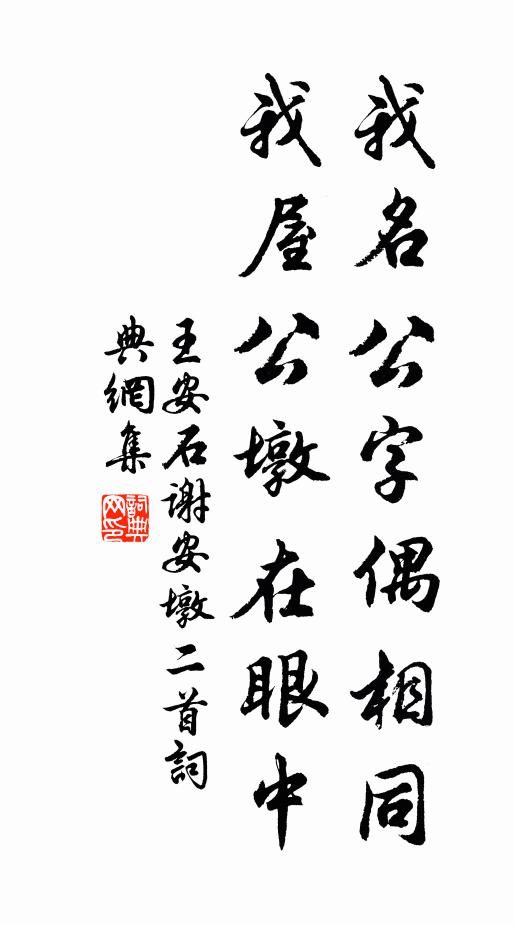 我名公字偶相同
我屋公墩在眼中
王安石谢安墩二首詞
典網集
詞典
网印